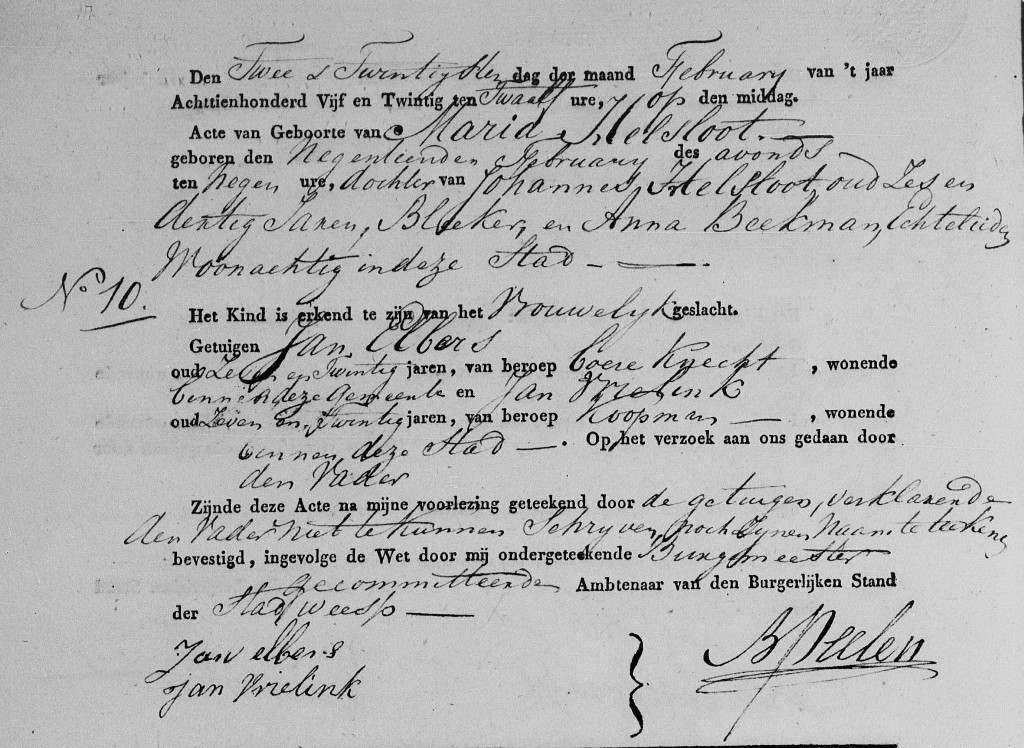 Den Twee & Twintigsten dag der maand February van 't jaar
Achttienhonderd Vijf en Twintig ten Twaalf ure, op den middag.
Acte van Geboorte van Maria Helsloot.
geboren den Negentienden February des avonds
ten Negen ure, dochter van Johannes Helsloot, oud Zes en
dertig Jaren, Bleeker, en Anna Beekman, Echtelieden
Woonachtig in deze Stad
No 10.
Het Kind is erkend te zijn van het Vrouwelyk geslacht.
Getuigen Jan Elbers
oud Zeven en Twintig jaren, van beroep Boere Knecht, wonende
binnen deze Gemeente en Jan Vrielink
oud Zeven en Twintig jaren, van beroep Koopman, wonende
binnen deze Stad. Op het verzoek aan ons gedaan door
den Vader
Zijnde deze Acte na mijne voorlezing geteekend door de getuigen, verklarende
den Vader niet te kunnen Schryven, noch Zynen Naam te teekene
bevestigd, ingevolge de Wet door mij ondergeteekende Burgemeester
Gecommitteerde Ambtenaar van den Burgerlijken Stand
der Stad Weesp
Jan elbers
Jan Vrielink